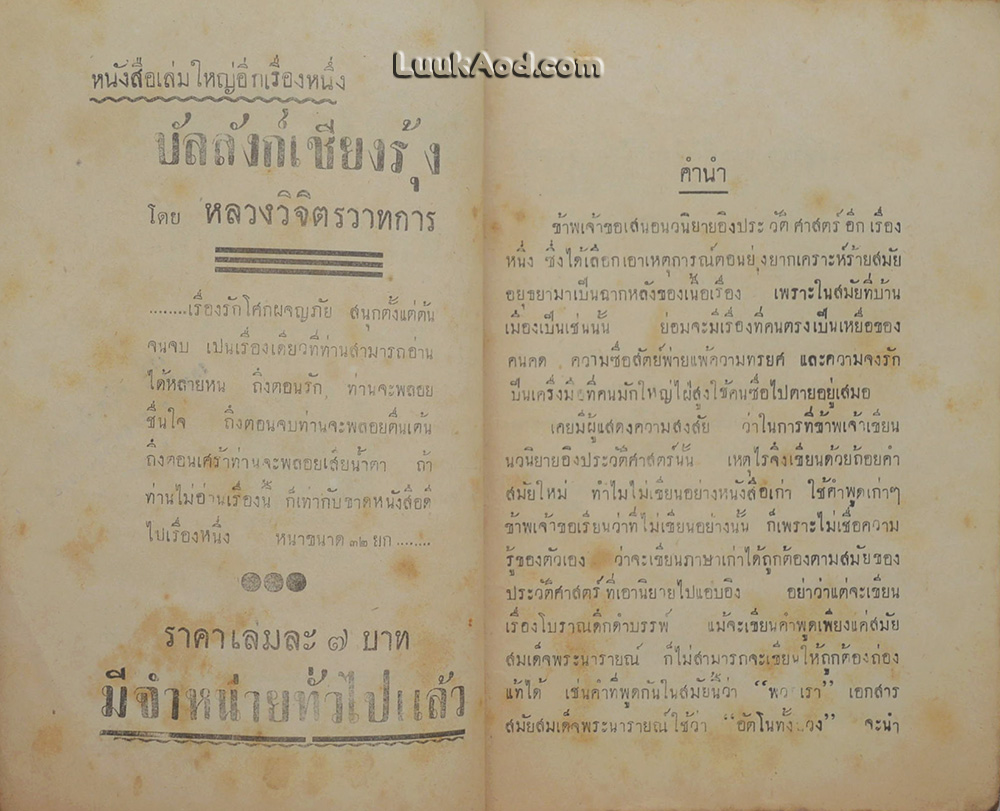 LuukAod.com
หนังสือเล่มใหญ่อีกเรื่องหนึ่ง
บัลลังก์เชียงรุ้ง
โดย หลวงวิจิตรวาทการ
........เรื่องรักโศกผจญภัย สนุกตั้งแต่ต้น
จนจบ เปนเรื่องเดียวที่ท่านสามารถอ่าน
ได้หลายหน ถึงตอนรัก, ท่านจะพลอย
ชื่นใจ ถึงตอนจบท่านจะพลอยตื่นเต้น
ถึงตอนเศร้าท่านจะพลอยเสียน้ำตา ถ้า
ท่านไม่อ่านเรื่องนี้ ก็เท่ากับขาดหนังสือดี
ไปเรื่องหนึ่ง หนาขนาด ๓๒ ยก ........
ราคาเล่มละ ๗ บาท
มีจำหน่ายทั่วไปแล้ว
คำนำ
ข้าพเจ้าขอเสนอนวนิยายอิงประวัติศาสตร์ อีกเรื่อง
หนึ่ง ซึ่งได้เลือกเอาเหตุการณ์ตอนยุ่งยากเคราะห์ร้ายสมัย
อยุธยามาเป็นฉากหลังของเนื้อเรื่อง เพราะในสมัยที่บ้าน
เมืองเป็นเช่นนั้น ย่อมจะมีเรื่องที่คนตรงเป็นเหยื่อของ
คนคด ความซื่อสัตย์พ่ายแพ้ความทรยศ และความจงรัก
เป็นเครื่องมือที่คนมักใหญ่ใฝ่สูงใช้คนซื่อไปตายอยู่เสมอ
เคยมีผู้แสดงความสงสัย ว่าในการที่ข้าพเจ้าเขียน
นวนิยายอิงประวัติศาสตร์นั้น เหตุไรจึงเขียนด้วยถ้อยคำ
สมัยใหม่ ทำไมไม่เขียนอย่างหนังสือเก่า ใช้คำพูดเก่าๆ
ข้าพเจ้าขอเรียนว่าที่ไม่เขียนอย่างนั้น ก็เพราะไม่เชื่อความ
รู้ของตัวเอง ว่าจะเขียนภาษาเก่าได้ถูกต้องตามสมัยของ
ประวัติศาสตร์ ที่เอานิยายไปแอบอิง อย่าว่าแต่จะเขียน
เรื่องโบราณดึกดำบรรพ์ แม้จะเขียนคำพูดเพียงแค่สมัย
สมเด็จพระนารายณ์ ก็ไม่สามารถจะเขียนให้ถูกต้องถ่อง
แท้ได้ เช่นคำที่พูดกันในสมัยนี้ว่า “พวกเรา” เอกสาร
สมัยสมเด็จพระนารายณ์ ใช้ว่า “อัตโนทั้งปวง” จะนำ